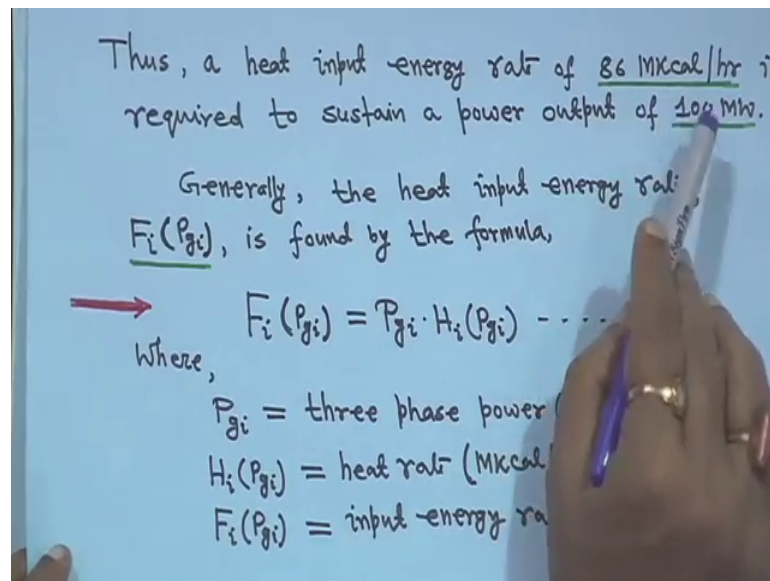 Thus, a heat input energy rate of 86 MKcal/hr i
required to sustain a power output of 100 MW.
Generally, the heat input energy rat
Fi(Pgi), is found by the formula,
Fi(Pgi) = Pgi · Hi(Pgi) ----
Where,
Pgi = three phase power (
Hi(Pgi) = heat rate (MKcal/
Fi(Pgi) = input energy ra